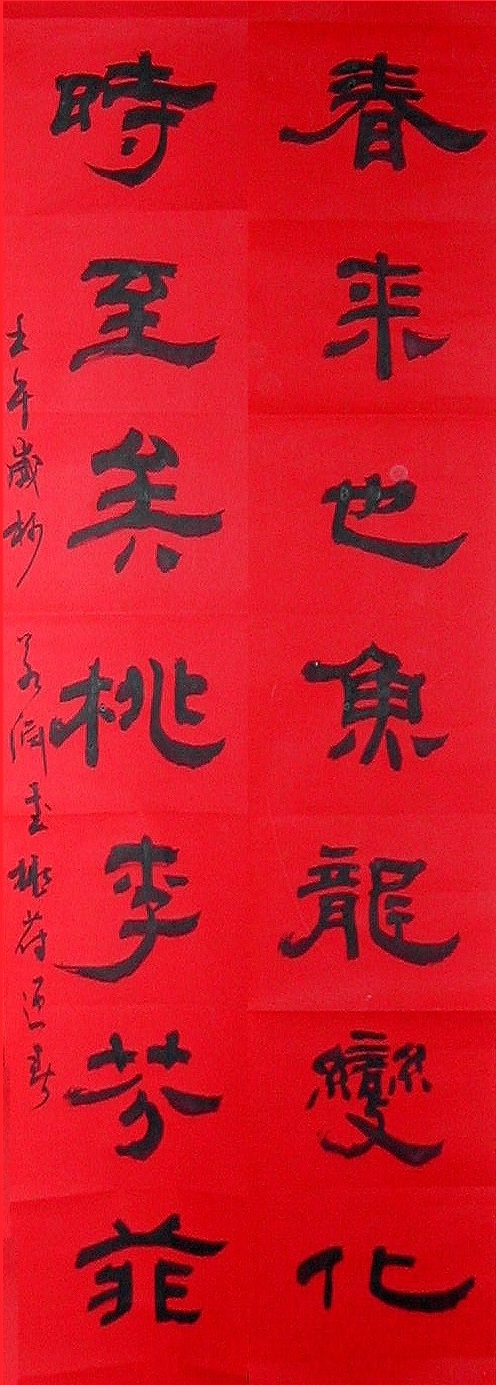 春来也魚龍變化
時至矣桃李芬菲
壬午歲杪